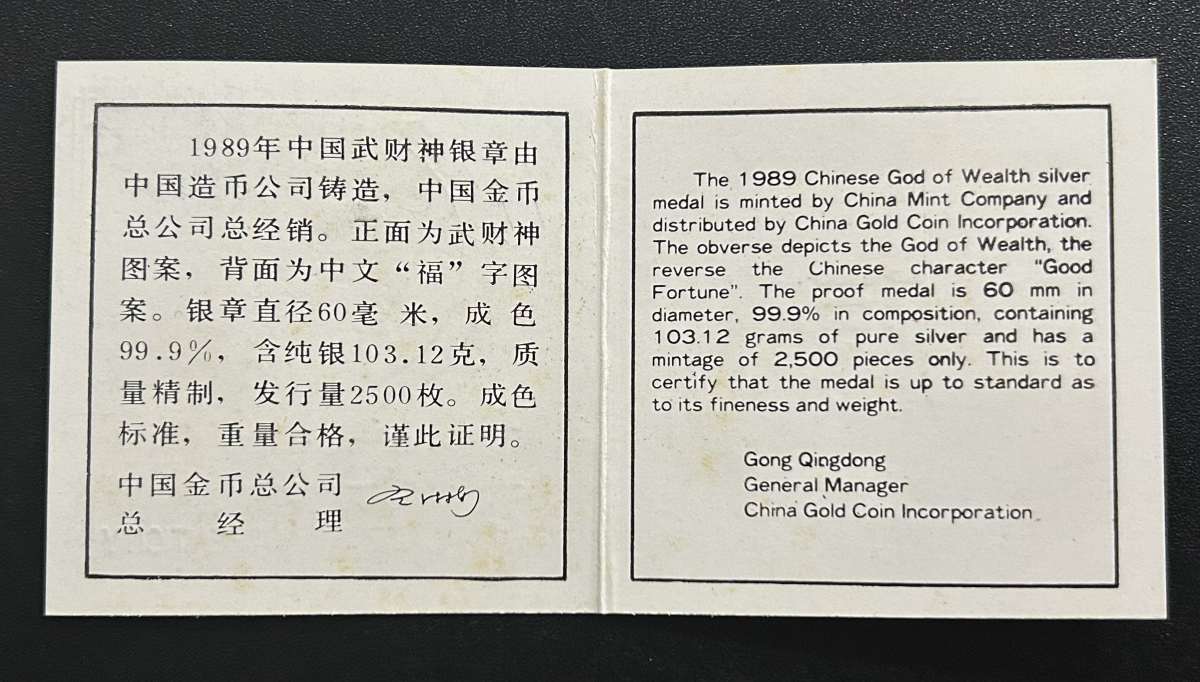 1989年中国武财神银章由
中国造币公司铸造，中国金币
总公司总经销。正面为武财神
图案，背面为中文“福”字图
案。银章直径60毫米，成色
99.9%，含纯银103.12克，质
量精制，发行量2500枚。成色
标准，重量合格，谨此证明。
中国金币总公司
总经理
The 1989 Chinese God of Wealth silver
medal is minted by China Mint Company and
distributed by China Gold Coin Incorporation.
The obverse depicts the God of Wealth, the
reverse the Chinese character "Good
Fortune". The proof medal is 60 mm in
diameter, 99.9% in composition, containing
103.12 grams of pure silver and has a
mintage of 2,500 pieces only. This is to
certify that the medal is up to standard as
to its fineness and weight.
Gong Qingdong
General Manager
China Gold Coin Incorporation